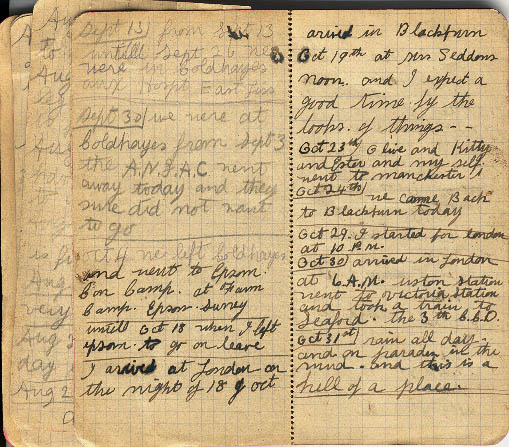 Sept 13 from Sept 13
untill Sept 26 we
were in Boldhayes
aux Hospt. East Liss
Sept 30 we were at
boldhayes from Sept 3
the A.N.Z.A.C went
away today and they
sure did not want
to go
we left boldhayes
and went to Epsom
Con Camp. at Farm
Camp. Epsom. Surrey
untill Oct 18 when I left
epsom. to go on leave
I arived at London on
the night of 18 of oct
arived in Blackburn
Oct 19th at mrs Seddons
noon. and I expect a
good time by the
looks. of things --
Oct 23rd Olive and Kitty
and Ester and my self
went to manchester
Oct 24th
we came Back
to Blackburn today
Oct 29. I started for london
at 10 P.M.
Oct 30 arrived in London
at 6. A.M. uston Station
went to victoria Station
and took a train to
Seaford. the 3rd C.C.D.
Oct 31st rain all day.
and on parades in the
mud. and this is a
hell of a place.